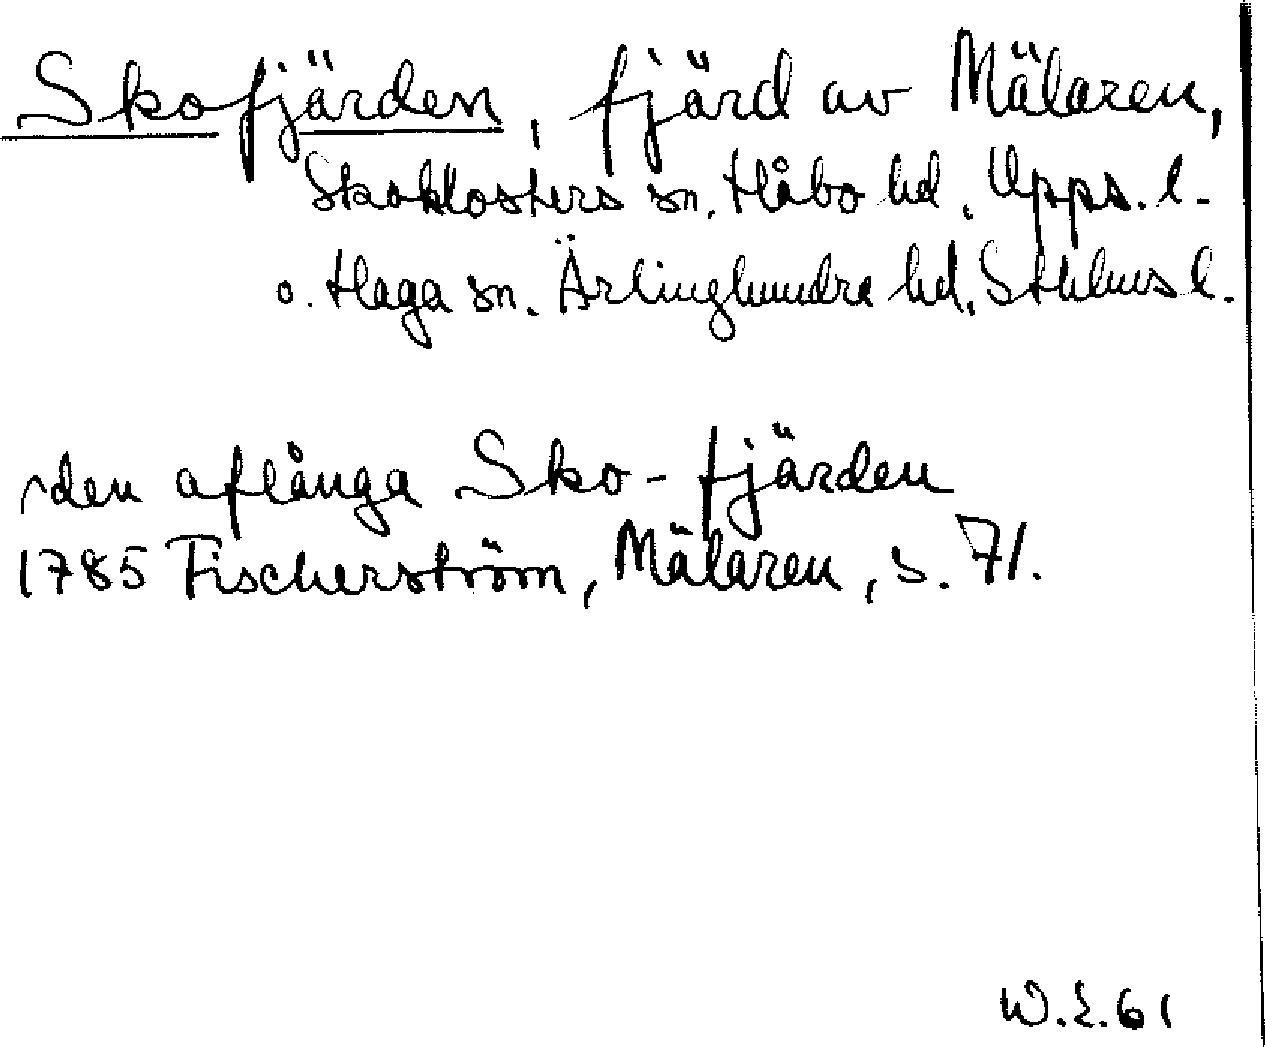 Skofjärden, fjärd av Mälaren,
Skoklosters sn. Håbo hd, Upps. l.
o. Haga sn. Ärlinghundra hd, Sthlms l.
den aflånga Sko-fjärden
1785 Fischerström, Mälaren, s. 71.
W.E.61